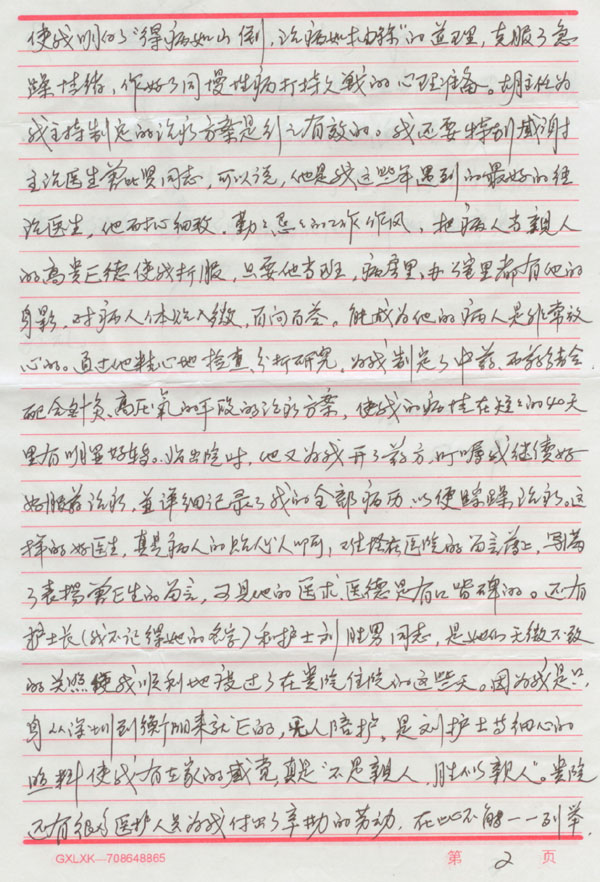 使我明白了“得病如山倒,治病如抽丝”的道理,克服了急
躁情绪,作好了同慢性病打持久战的心理准备。胡主任为
我主持制定的治疗方案是行之有效的。我还要特别感谢
主治医生曾此贤同志,可以说,他是我这些年遇到的最好的经
治医生,他耐心细致、勤勤恳恳的工作作风,把病人当親人
的高贵医德使我折服,只要他当班,病房里、办公室里都有他的
身影,对病人体贴入微,百问百答。能成为他的病人是非常放
心的。通过他精心地检查、分析研究,为我制定了中药、西药结合,
配合针灸、高压氧的手段的治疗方案,使我的病情在短短的40天
里有明显好转。临出院时,他又为我开了药方,叮嘱我继续好
好服药治疗,并详细记录了我的全部病历,以便跟踪治疗。这
样的好医生,真是病人的贴心人啊,在医院的留言簿上,写满
了表揚曾医生的留言,可见他的医术、医德是有口皆碑的。还有
护士长(我不记得她的名字)和护士刘胜男同志,是她们无微不致
的关照使我顺利地渡过了在贵院住院的这些天。因为我是只
身从深圳到衡阳来就医的,无人陪护,是刘护士等细心的
照料使我有在家的感觉,真是“不是親人,胜似親人”。贵院
还有很多医护人员为我付出了辛勤的劳动,在此不能一一列举,
GXLXK—708648865
第 2 页